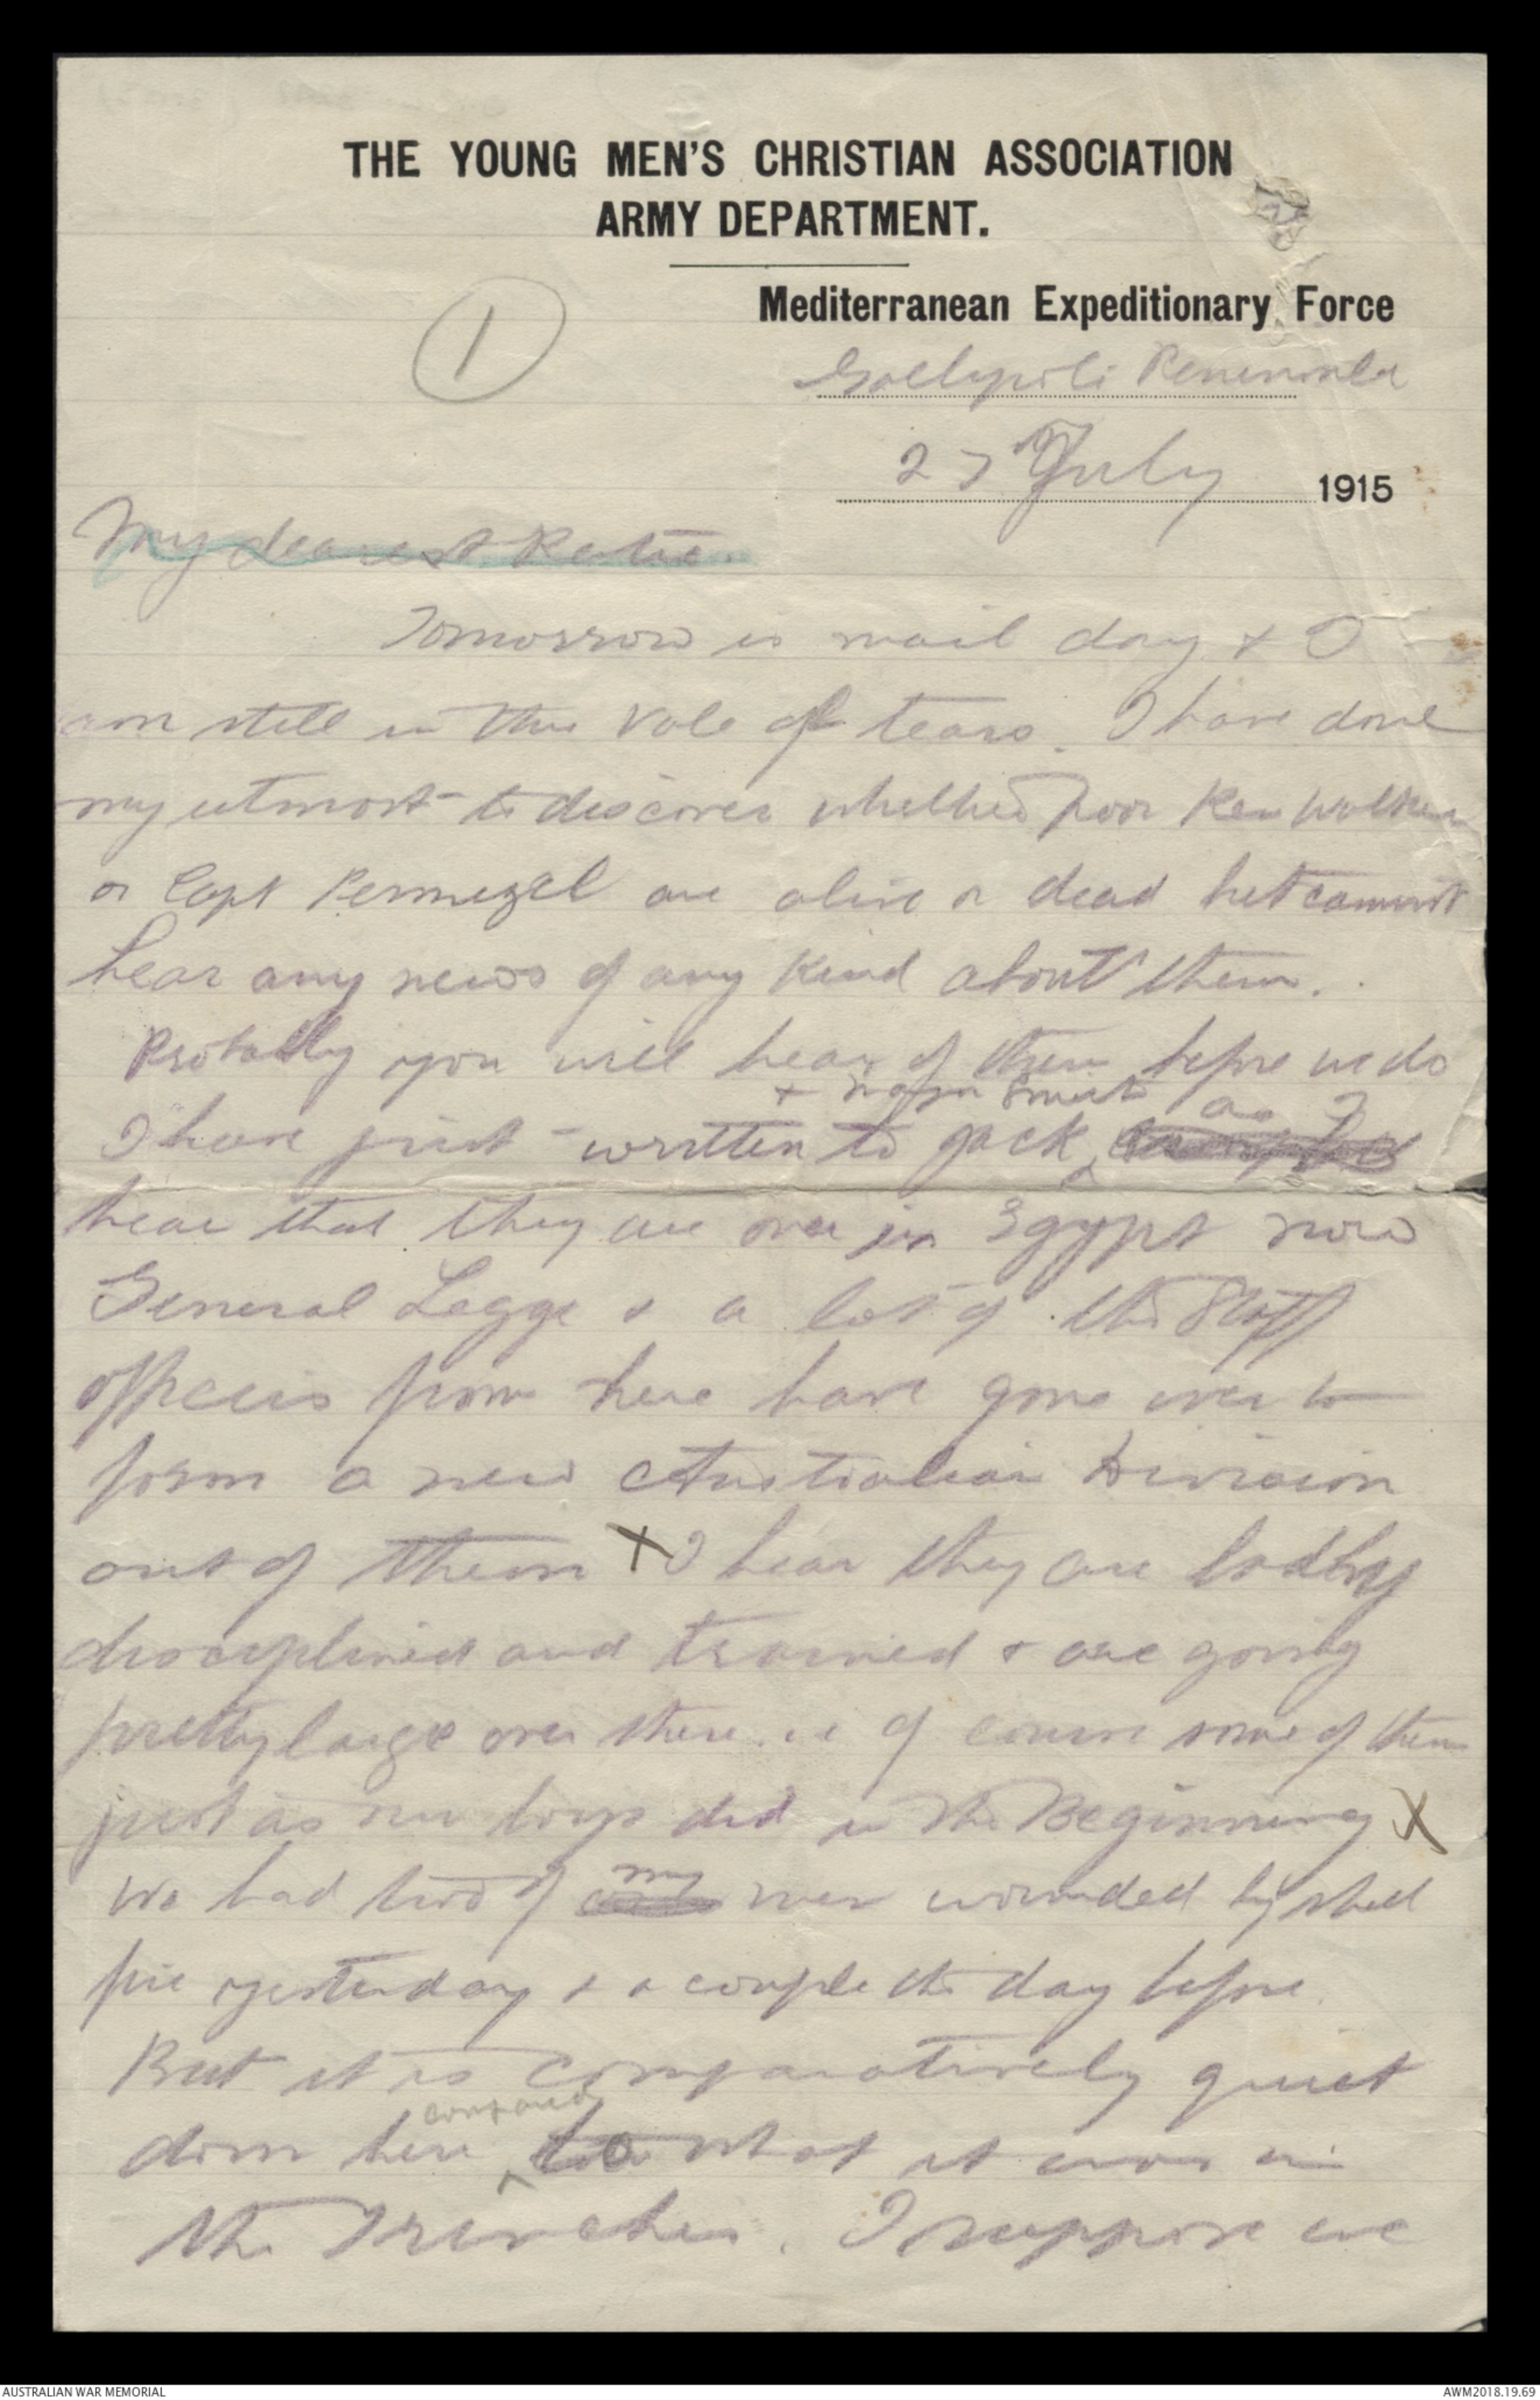 THE YOUNG MEN'S CHRISTIAN ASSOCIATION
ARMY DEPARTMENT.
Mediterranean Expeditionary Force
1
Gallipoli Peninsula
27 July 1915
My dearest Katie.
Tomorrow is mail day & I
am still in this vale of tears. I have done
my utmost to discover whether poor Ken Walker
or Capt Permezel are alive or dead but cannot
hear any news of any kind about them.
Probably you will hear of them before we do
& Major Smith as I
I have just written to Jack
hear that they are over in Egypt now
General Legge & a lot of the Staff
officers from here have gone over to
form a new Australian Division
out of them X I hear they are badly
disciplined and trained & are going
pretty large over there. i e of course some of them
just as our boys did in the Beginning X
my
We had two of men wounded by shell
fire yesterday & a couple the day before.
But it is comparatively quiet
compared
down here to what it was in
the Trenches. I suppose we
AUSTRALIAN WAR MEMORIAL
AWM2018.19.69